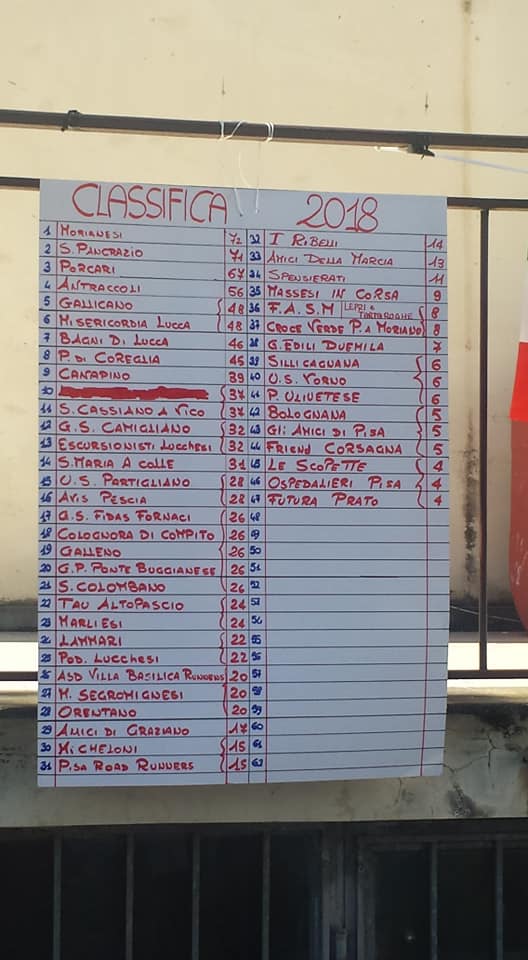 CLASSIFICA 2018
1 MORIANESI 72
2 S. PANCRAZIO 71
3 PORCARI 67
4 ANTRACCOLI 56
5 GALLICANO 48
6 MISERICORDIA LUCCA 48
7 BAGNI DI LUCCA 46
8 P. DI COREGLIA 45
9 CANAPINO 39
10 37
11 S. CASSIANO A VICO 37
12 G.S. CAMIGLIANO 32
13 ESCURSIONISTI LUCCHESI 32
14 S. MARIA A COLLE 31
15 U.S. PARTIGLIANO 28
16 AVIS PESCIA 28
17 G.S. FIDAS FORNACI 26
18 COLOGNORA DI COMPITO 26
19 GALLENO 26
20 G.P. PONTE BUGGIANESE 26
21 S. COLOMBANO 26
22 TAU ALTOPASCIO 24
23 MARLIESI 24
24 LAMMARI 22
25 POD. LUCCHESI 22
26 ASD VILLA BASILICA RUNNERS 20
27 M. SEGROMIGNESI 20
28 ORENTANO 20
29 AMICI DI GRAZIANO 17
30 MICHELONI 15
31 PISA ROAD RUNNERS 15
32 I RIBELLI 14
33 AMICI DELLA MARCIA 13
34 SPENSIERATI 11
35 MASSESI IN CORSA 9
36 F.A.S.M LEPRI E TARTARUGHE 8
37 CROCE VERDE P.A MORIANO 8
38 G. EDILI DUEMILA 7
39 SILLICAGNANA 6
40 U.S. VORNO 6
41 P. ULIVETESE 6
42 BOLOGNANA 5
43 GLI AMICI DI PISA 5
44 FRIEND CORSAGNA 5
45 LE SCOPETTE 4
46 OSPEDALIERI PISA 4
47 FUTURA PRATO 4
48
49
50
51
52
53
54
55
56
57
58
59
60
61
62